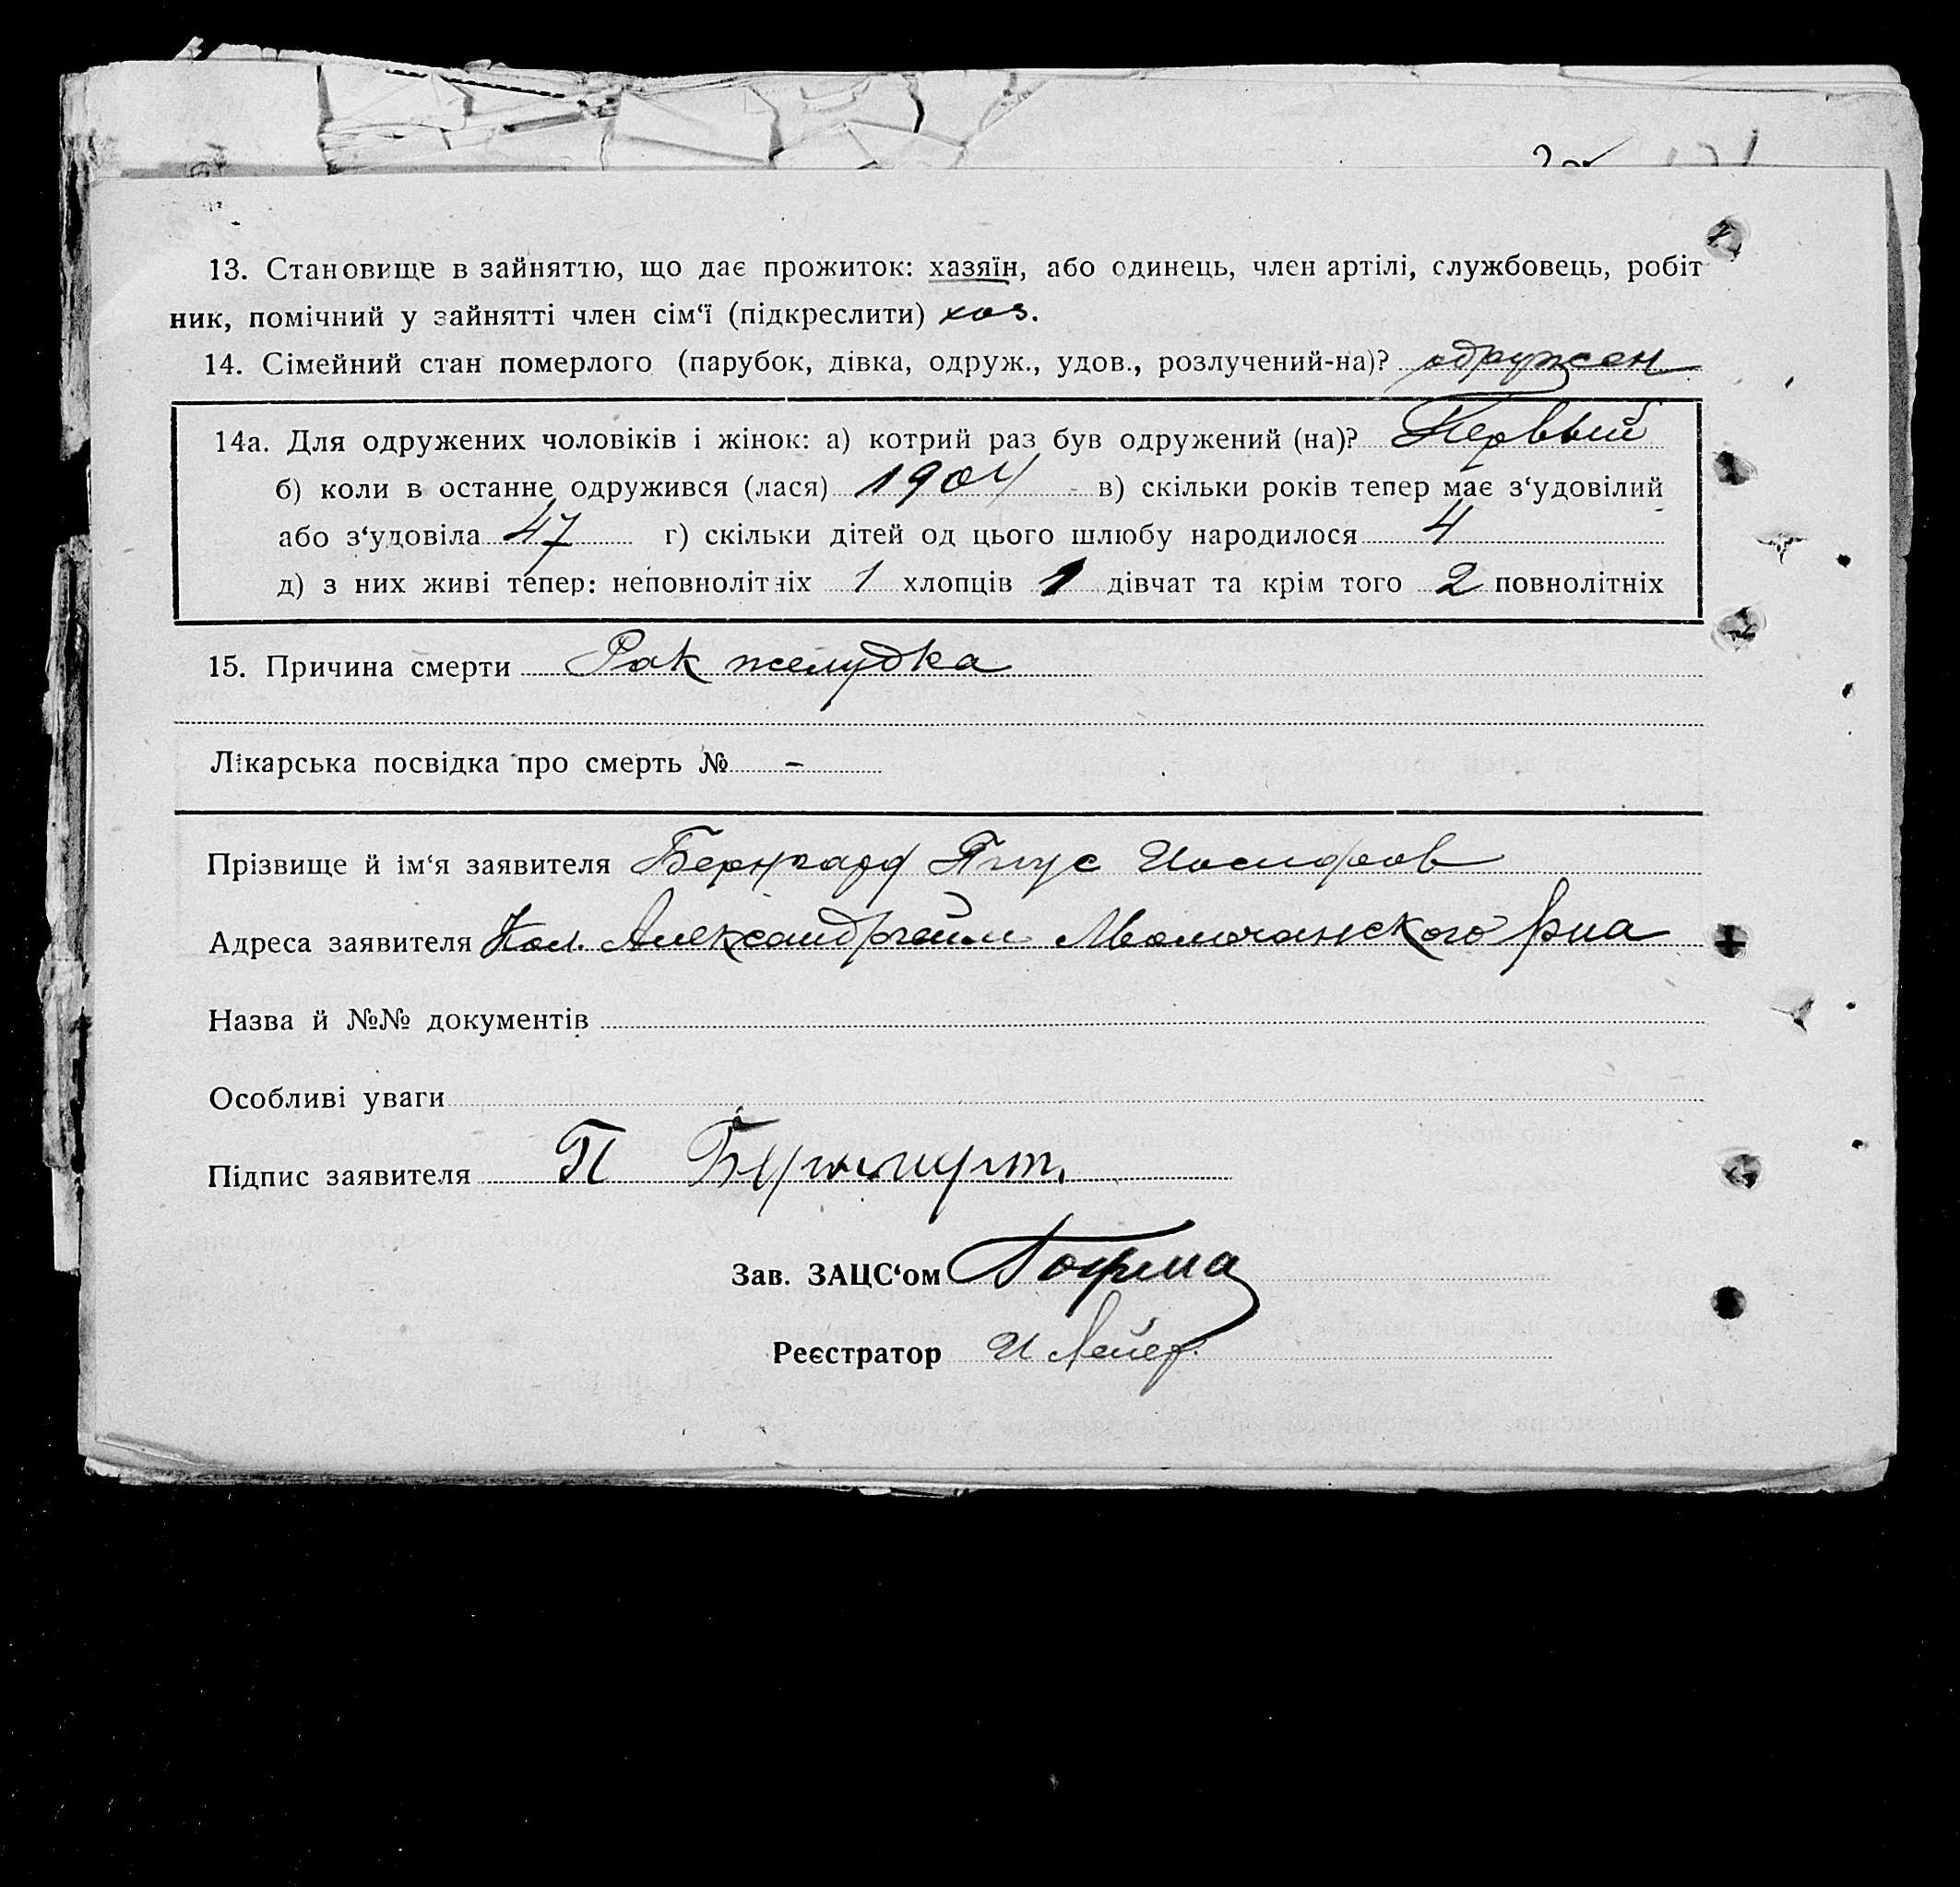 13. Становище в зайняттю, що дає прожиток: хазяїн, або одинець, член артілі, службовець, робіт
ник, помічний у зайнятті член сім‘ї (підкреслити) хоз.
14. Сімейний стан померлого (парубок, дівка, одруж., удов., розлучений-на)? одружен
14а. Для одружених чоловіків і жінок: а) котрий раз був одружений (на)? Первый
б) коли в останнє одружився (лася) 1904 в) скільки років тепер має з‘удовілий
або з‘удовіла 47 г) скільки дітей од цього шлюбу народилося 4
д) з них живі тепер: неповнолітніх 1 хлопців 1 дівчат та крім того 2 повнолітніх
15. Причина смерти Рак желудка
Лікарська посвідка про смерть № -
Прізвище й ім‘я заявителя Бернгард Пиус Иосифов
Адреса заявителя Кол. Александргейм Молочанского р-на
Назва й №№ документів
Особливі уваги
Підпис заявителя П
Зав. ЗАЦС‘ом Гофма
Реєстратор